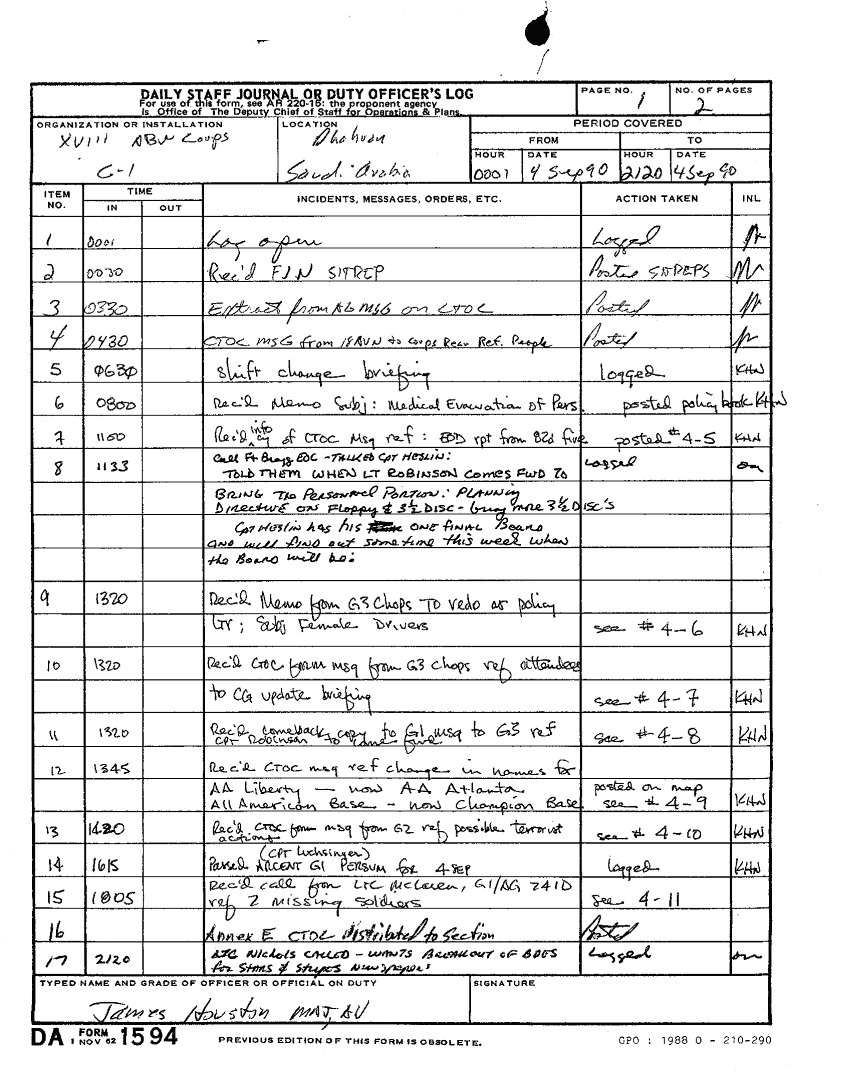 DAILY STAFF JOURNAL OR DUTY OFFICER'S LOG
For use of this form, see AR 220-15; the proponent agency
is Office of The Deputy Chief of Staff for Operations & Plans.
PAGE NO. 1
NO. OF PAGES 2
ORGANIZATION OR INSTALLATION
XVIII ABN Corps
G-1
LOCATION
Dhahran
Saudi Arabia
PERIOD COVERED
FROM TO
HOUR DATE HOUR DATE
0001 4 Sep 90 2120 4 Sep 90
ITEM NO. TIME IN OUT INCIDENTS, MESSAGES, ORDERS, ETC. ACTION TAKEN INL
1 0001 Log open Logged
2 0030 Rec'd FIN SITREP Posted SITREPS
3 0330 Extract from AG MSG on CTOC Posted
4 0430 CTOC MSG from 18 AVN to Corps Rear Ref. People Posted
5 0630 shift change briefing logged KHN
6 0800 Rec'd Memo Subj: Medical Evacuation of Pers posted policy book KHN
7 1100 Rec'd info cy of CTOC Msg ref: EOD rpt from 82d five posted #4-5 KHN
8 1133 Call Ft Bragg EOC - TALKED CPT HESLIN: Logged
TOLD THEM WHEN LT ROBINSON COMES FWD TO
BRING The Personnel Portion: PLANNING
DIRECTIVE ON FLOPPY & 3½ DISC - bring more 3½ DISC'S
CPT HESLIN has his ONE FINAL Board
AND will FIND out sometime this week when
the Board will be:
9 1320 Rec'd Memo from G3 Chops TO redo as policy
ltr; Subj Female Drivers see # 4-6 KHN
10 1320 Rec'd CTOC form msg from G3 chops ref attendees
to CG update briefing see # 4-7 KHN
11 1320 Rec'd comeback copy to G1 msg to G3 ref
CPT Robinson to come see # 4-8 KHN
12 1345 Rec'd CTOC msg ref change in names for
AA Liberty — now AA Atlanta posted on map
All American Base - now Champion Base see # 4-9 KHN
13 1420 Rec'd CTOC form msg from G2 ref possible terrorist
actions see # 4-10 KHN
(CPT Luchsinger)
14 1615 Passed ARCENT G1 PERSUM for 4 SEP logged KHN
15 1805 Rec'd call from LTC McLaren, G1/AG 24ID
ref 2 missing soldiers see 4-11
16 Annex E CTOC Distributed to Section Posted
17 2120 Nichols CALLED - WANTS BREAKOUT OF BDES Logged
for STARS & Stripes Newspapers
TYPED NAME AND GRADE OF OFFICER OR OFFICIAL ON DUTY
James Houston MAJ, AU
SIGNATURE
DA FORM 1 NOV 62 1594
PREVIOUS EDITION OF THIS FORM IS OBSOLETE.
GPO : 1988 O - 210-290